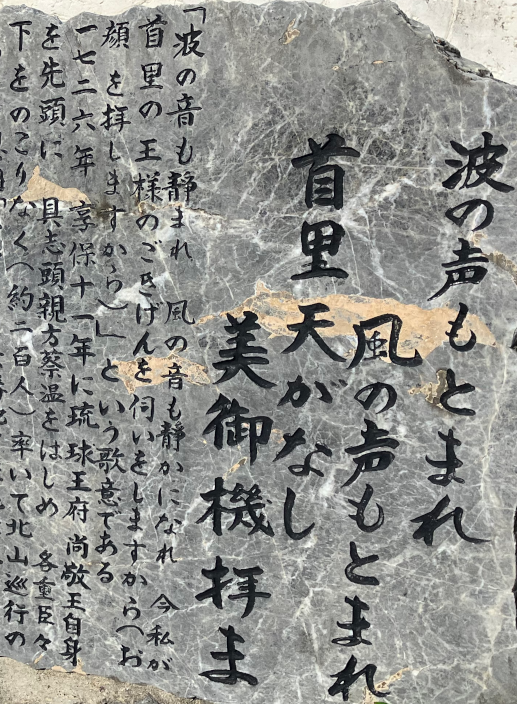 波の声もとまれ
風の声もとまれ
首里天がなし
美御機拝ま
「波の音も静まれ 風の音も静かになれ 今私が
首里の王様のごきげんを伺いをしますから(お
顔を拝しますから)」という歌意である
一七二六年享保十一年に琉球王府尚敬王自身
を先頭に 具志頭親方蔡温をはじめ 各重臣々
下をのこりなく(約二百人)率いて北山巡行の